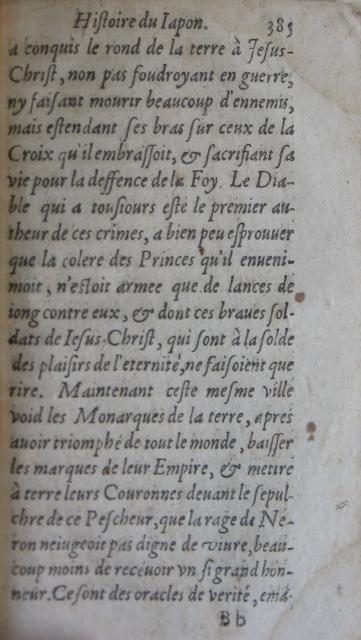 Histoire du Iapon. 385
a conquis le rond de la terre à Jesus-
Christ, non pas foudroyant en guerre,
ny faisant mourir beaucoup d'ennemis,
mais estendant ses bras sur ceux de la
Croix qu'il embrassoit, & sacrifiant sa
vie pour la deffence de la Foy. Le Dia-
ble qui a tousiours esté le premier au-
theur de ces crimes, a bien peu esprouuer
que la colere des Princes qu'il enueni-
moit, n'estoit armee que de lances de
iong contre eux, & dont ces braues sol-
dats de Iesus-Christ, qui sont à la solde
des plaisirs de l'eternité, ne faisoient que
rire. Maintenant ceste mesme ville
void les Monarques de la terre, apres
auoir triomphé de tout le monde, baisser
les marques de leur Empire, & mettre
à terre leurs Couronnes deuant le sepul-
chre de ce Pescheur, que la rage de Ne-
ron neiugeoit pas digne de viure, beau-
coup moins de receuoir vn si grand hon-
neur. Ce sont des oracles de verité, ema-
Bb